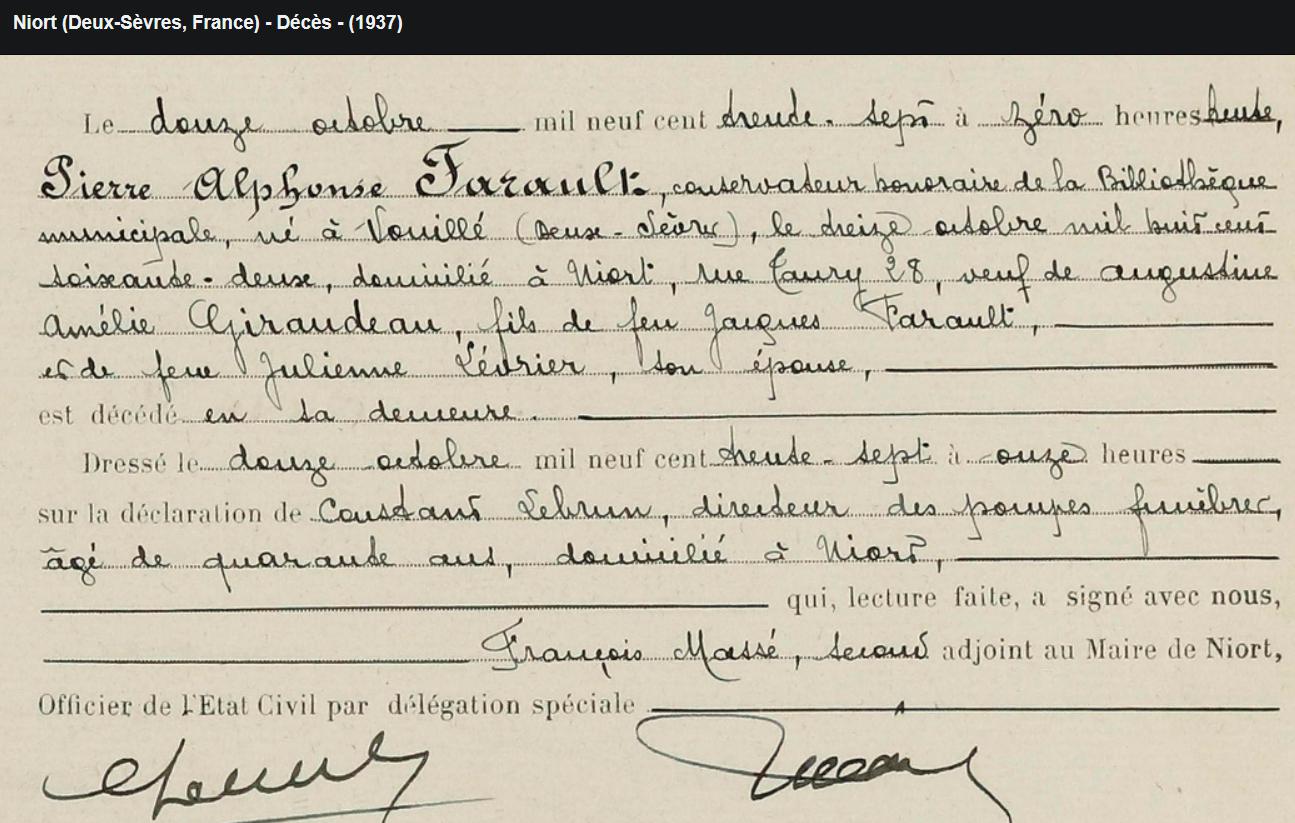 Niort (Deux-Sèvres, France) - Décès - (1937)
Le douze octobre mil neuf cent trente-sept à zéro heures trente,
Pierre Alphonse Farault, conservateur honoraire de la Billiothèque
municipale, né à Vouillé (Deux-Sèvres), le treize octobre mil huit cent
soixante-deux, domicilié à Niort, rue Taury 28, veuf de Augustine
Amélie Giraudeau, fils de feu Jacques Farault,
et de feue Julienne Lévrier, son épouse,
est décédé en sa demeure.
Dressé le douze octobre mil neuf cent trente-sept à onze heures
sur la déclaration de Constant Lebrun, directeur des pompes funèbres,
âgé de quarante ans, domicilié à Niort,
qui, lecture faite, a signé avec nous,
François Massé, second adjoint au Maire de Niort,
Officier de l'Etat Civil par délégation spéciale